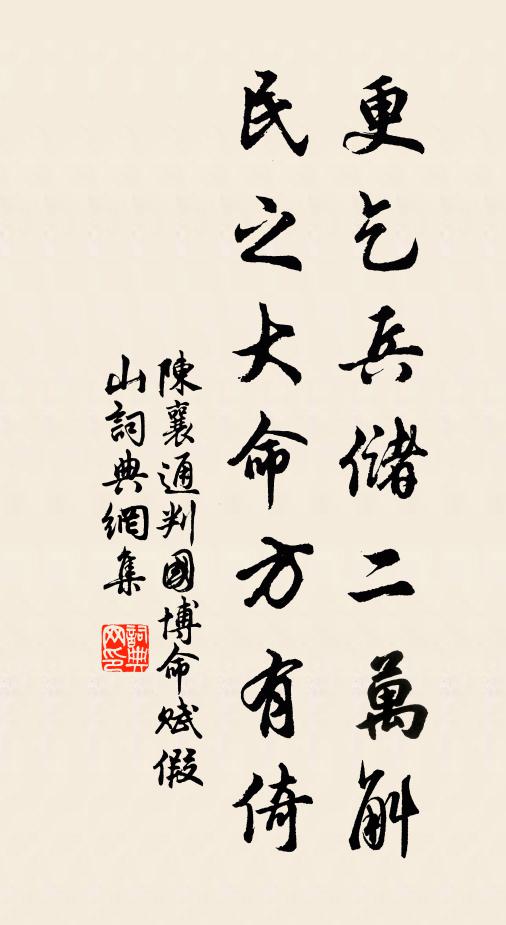 更乞兵儲二萬斛
民之大命方有倚
陳襄通判國博命賦假
山詞典網集
詞典網印